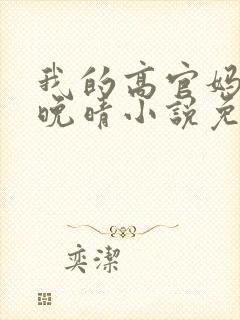 我的高官妈
晚晴小说免
奕潔